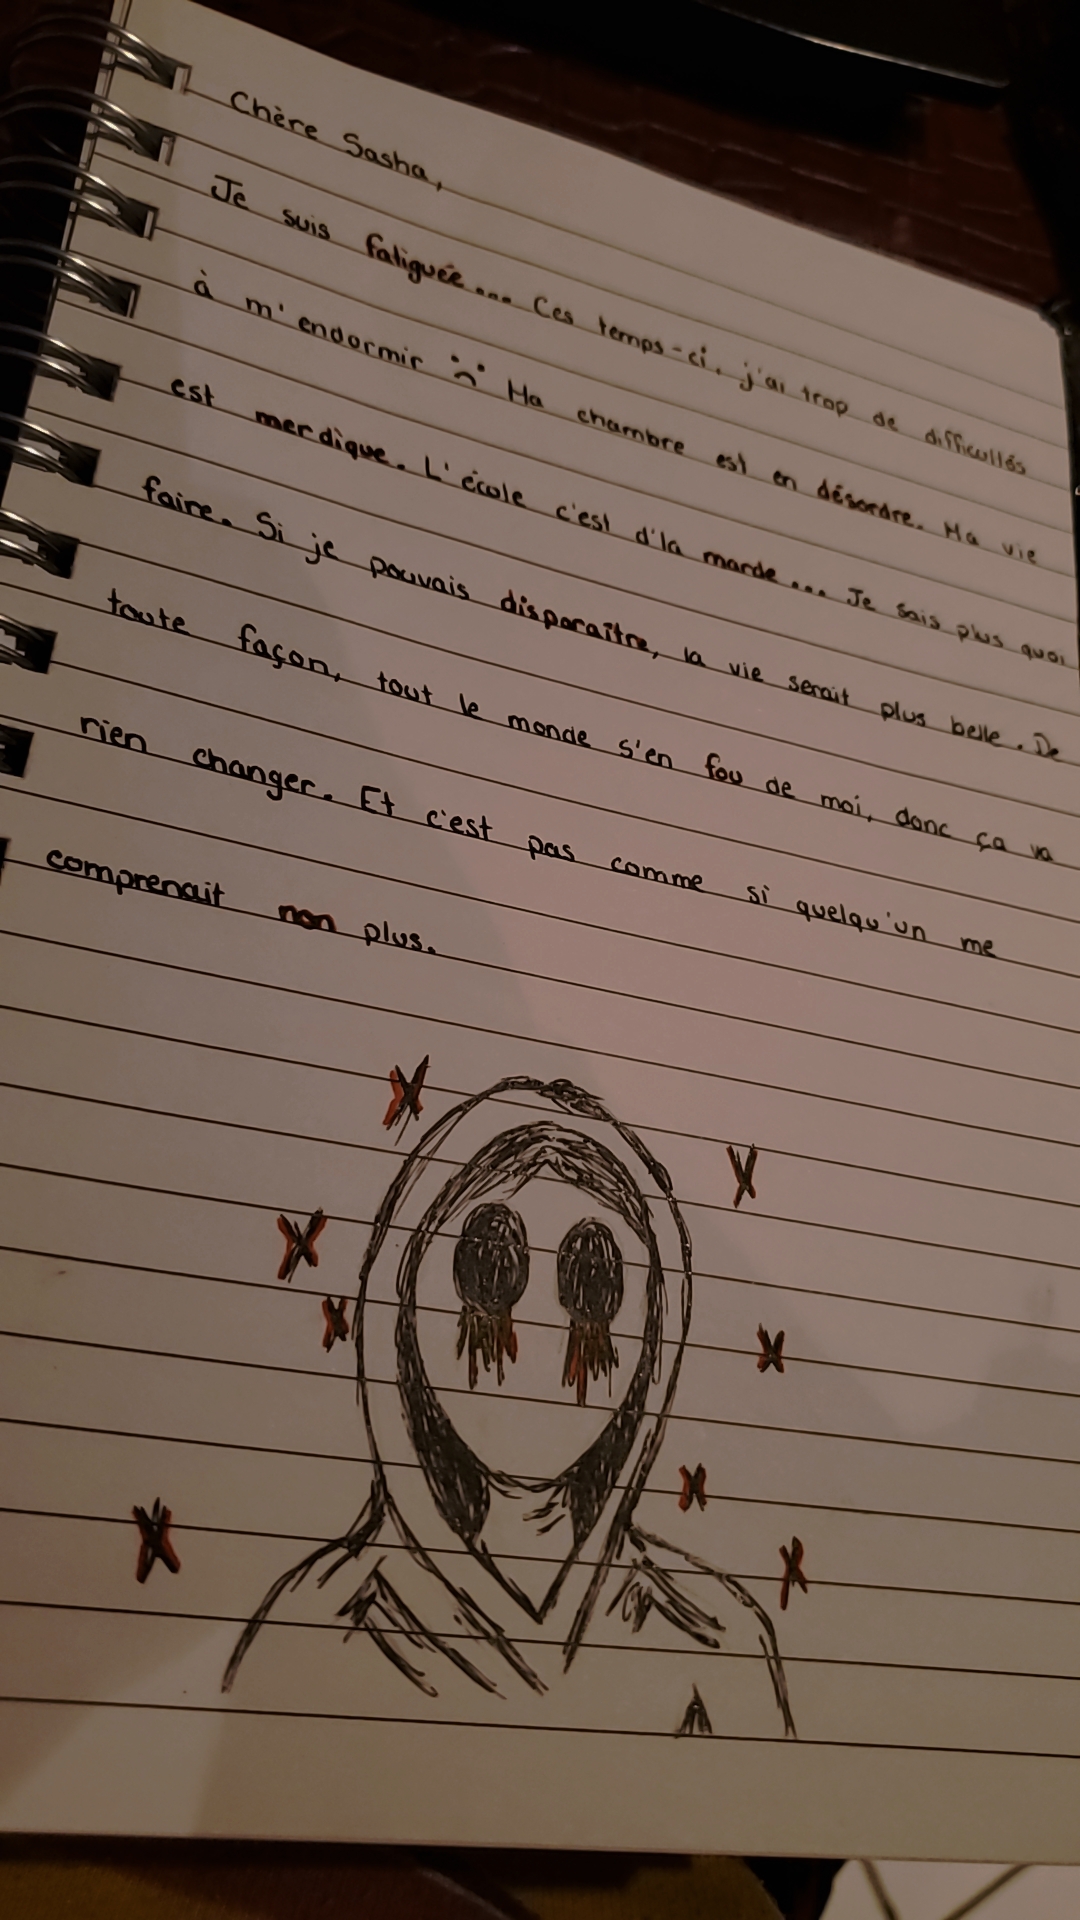 Chère Sasha,
Je suis fatiguée... Ces temps-ci, j'ai trop de difficultés
à m'endormir :( Ma chambre est en désordre. Ma vie
est merdique. L'école c'est d'la marde... Je sais plus quoi
faire. Si je pouvais disparaître, la vie serait plus belle. De
toute façon, tout le monde s'en fou de moi, donc ça va
rien changer. Et c'est pas comme si quelqu'un me
comprenait non plus.